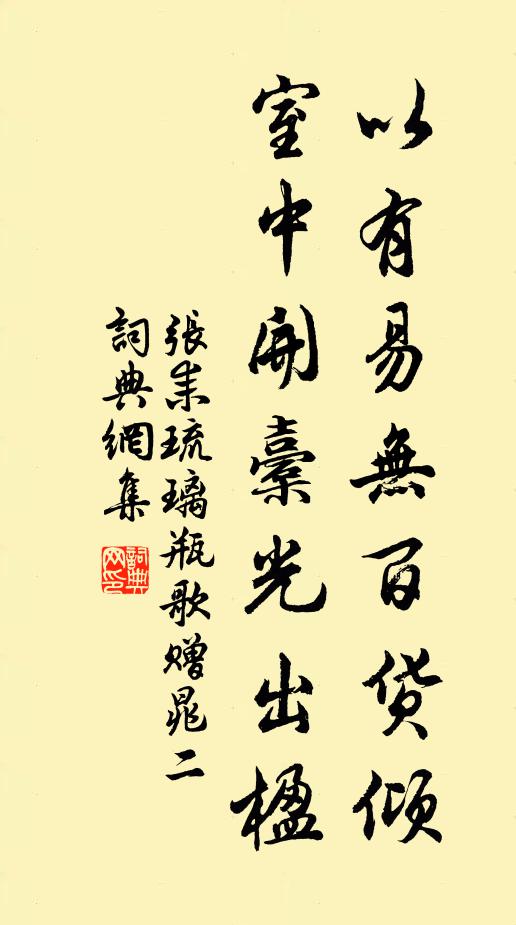 以有易無百貨傾
室中開橐光出楹
張耒琉璃瓶歌贈晁二
詞典網集
詞典网印